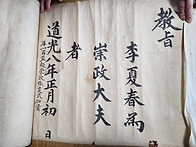 教旨
李夏春為
崇政大夫
者
道光八年正月初 日